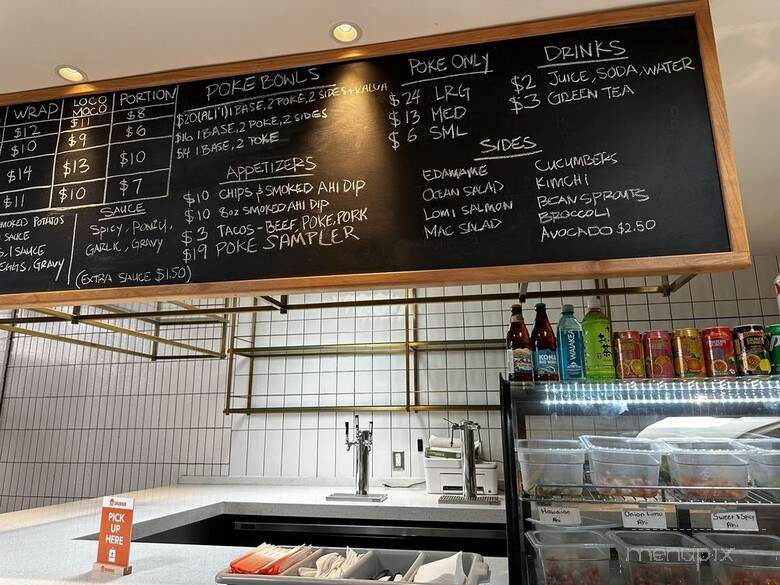 WRAP LOCO MOCO PORTION
$12 $11 $8
$10 $9 $6
$14 $13 $10
$11 $10 $7
SMOKED POTATOS
SAUCE
, 1 SAUCE
EGGS, GRAVY
SAUCE
SPICY, PONZU,
GARLIC, GRAVY
(EXTRA SAUCE $1.50)
POKE BOWLS
$20 (ALI'I) 1 BASE, 2 POKE, 2 SIDES + KALUA
$16 1 BASE, 2 POKE, 2 SIDES
$14 1 BASE, 2 POKE
APPETIZERS
$10 CHIPS & SMOKED AHI DIP
$10 8oz SMOKED AHI DIP
$3 TACOS - BEEF, POKE, PORK
$19 POKE SAMPLER
POKE ONLY
$24 LRG
$13 MED
$6 SML
DRINKS
$2 JUICE, SODA, WATER
$3 GREEN TEA
SIDES
EDAMAME
OCEAN SALAD
LOMI SALMON
MAC SALAD
CUCUMBERS
KIMCHI
BEAN SPROUTS
BROCCOLI
AVOCADO $2.50
KONA
WAIAKEA
PICK
UP
HERE
Hawaiian
Ahi
Onion Limu
Ahi
Sweet & Spicy
Ahi
menupix